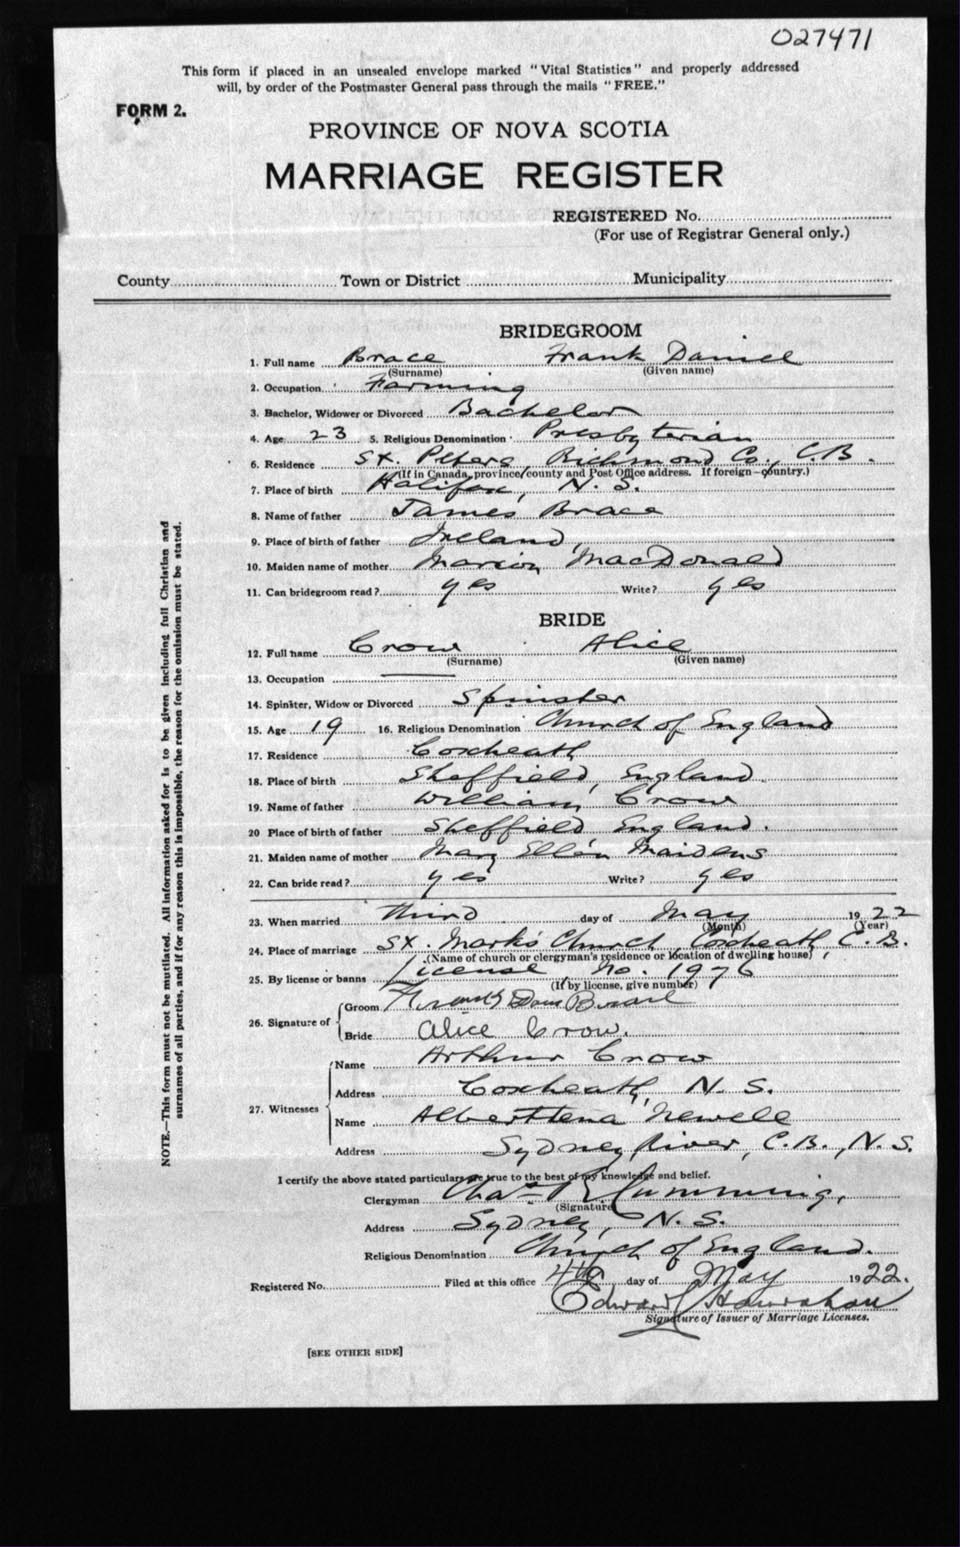 027471
This form if placed in an unsealed envelope marked "Vital Statistics" and properly addressed
will, by order of the Postmaster General pass through the mails "FREE."
FORM 2.
PROVINCE OF NOVA SCOTIA
MARRIAGE REGISTER
REGISTERED No.
(For use of Registrar General only.)
County Town or District Municipality
BRIDEGROOM
1. Full name Brace Frank Daniel
(Surname) (Given name)
2. Occupation Farming
3. Bachelor, Widower or Divorced Bachelor
4. Age 23 5. Religious Denomination Presbyterian
6. Residence St. Peters, Richmond Co., C.B.
(If in Canada, province, county and Post Office address. If foreign—country.)
7. Place of birth Halifax, N.S.
8. Name of father James Brace
9. Place of birth of father Ireland,
10. Maiden name of mother Marion MacDonald
11. Can bridegroom read? yes Write? yes
BRIDE
12. Full name Crow Alice
(Surname) (Given name)
13. Occupation
14. Spinster, Widow or Divorced Spinster
15. Age 19 16. Religious Denomination Church of England
17. Residence Coxheath
18. Place of birth Sheffield, England.
19. Name of father William Crow
20 Place of birth of father Sheffield England.
21. Maiden name of mother Mary Ellen Maidens
22. Can bride read? yes Write? yes
23. When married Third day of May 1922
(Month) (Year)
24. Place of marriage St. Mark's Church, Coxheath, C.B.
(Name of church or clergyman's residence or location of dwelling house)
25. By license or banns License, No. 1976
(If by license, give number)
26. Signature of
Groom
Bride Alice Crow.
27. Witnesses
Name Arthur Crow
Address Coxheath, N.S.
Name Alberttena Newell
Address Sydney River, C.B., N.S.
I certify the above stated particulars are true to the best of my knowledge and belief.
Clergyman Chas Cumming,
(Signature)
Address Sydney, N.S.
Religious Denomination Church of England.
Registered No. Filed at this office 4th day of May 1922.
Edward
Signature of Issuer of Marriage Licenses.
[SEE OTHER SIDE]
NOTE.—This form must not be mutilated. All information asked for is to be given including full Christian and
surnames of all parties, and if for any reason this is impossible, the reason for the omission must be stated.